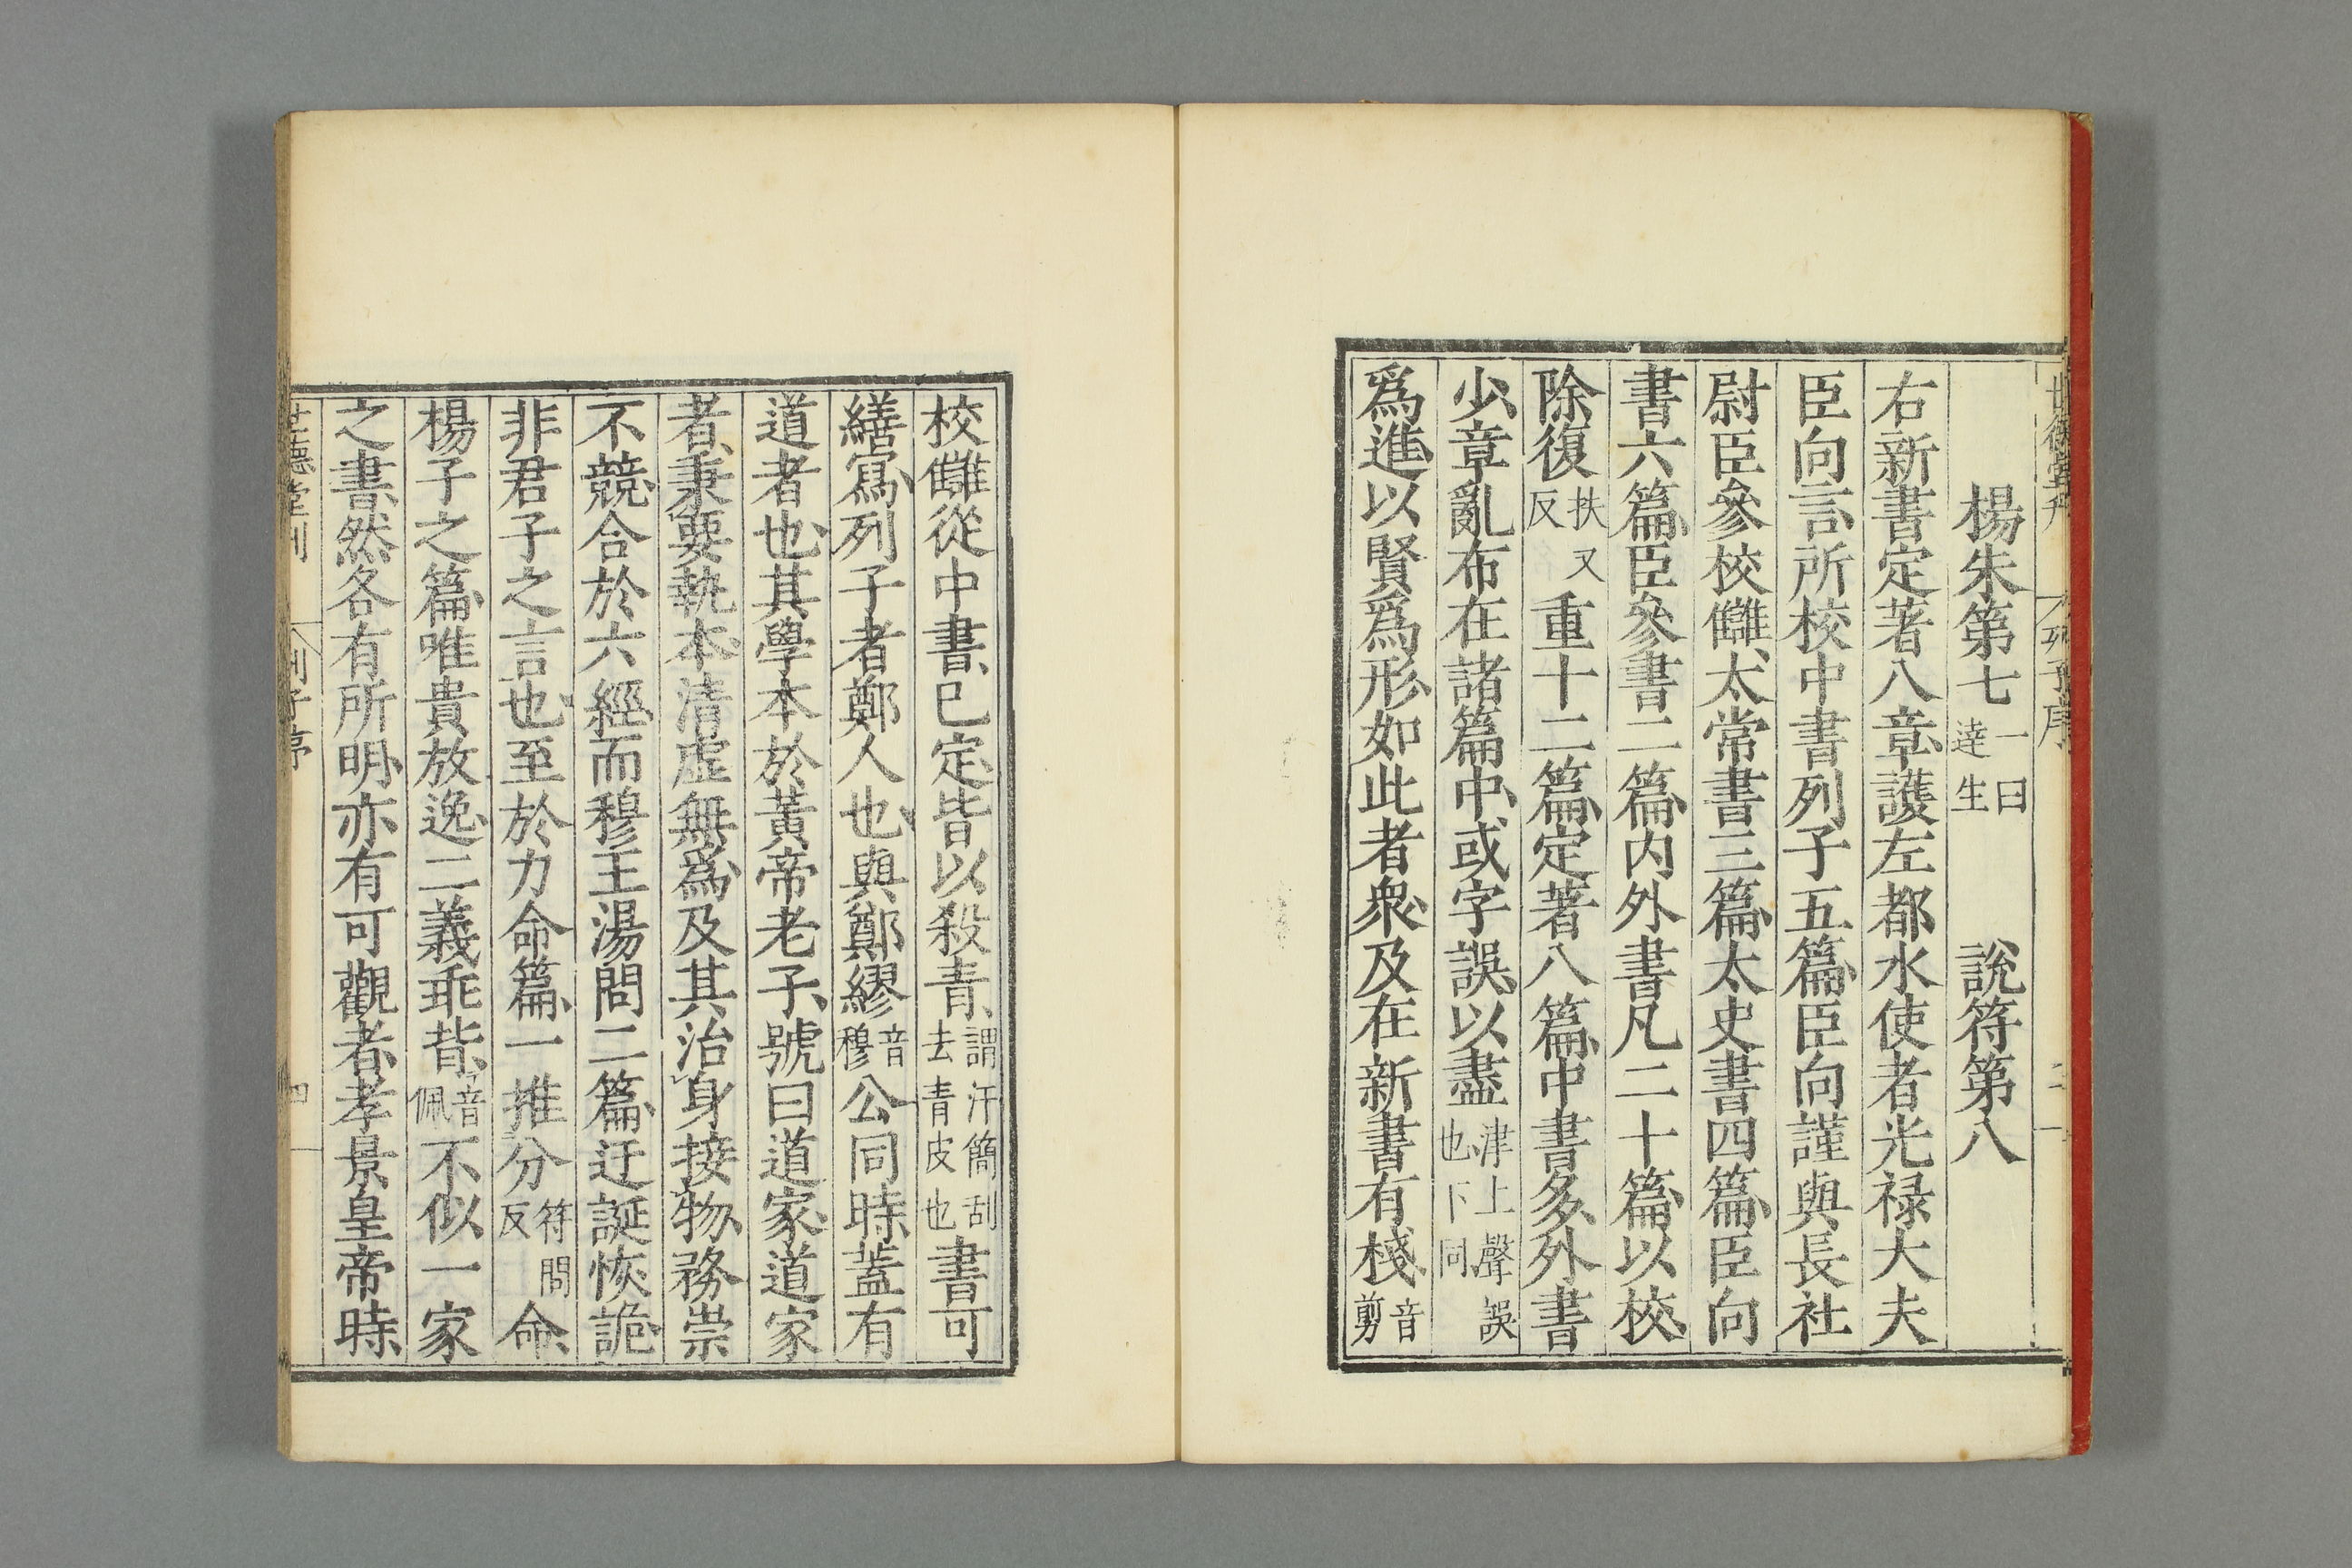 楊朱第七一曰達生　說符第八
右新書定著八章護左都水使者光祿大夫
臣向言所校中書列子五篇臣向謹與長社
尉臣參校讎太常書三篇太史書四篇臣向
書六篇臣參書二篇內外書凡二十篇以校
除復扶又反重十二篇定著八篇中書多外書
少章亂布在諸篇中或字誤以盡津上聲誤也下同
爲進以賢爲形如此者衆及在新書有棧音剪
校讎從中書已定皆以殺青謂汗簡刮去青皮也書可
繕寫列子者鄭人也與鄭繆音穆公同時蓋有
道者也其學本於黃帝老子號曰道家道家
者秉要執本清虛無爲及其治身接物務崇
不競合於六經而穆王湯問二篇迂誕恢詭
非君子之言也至於力命篇一推分符問反命
楊子之篇唯貴放逸二義乖背音佩不似一家
之書然各有所明亦有可觀者孝景皇帝時
世德堂刊　列子序　四